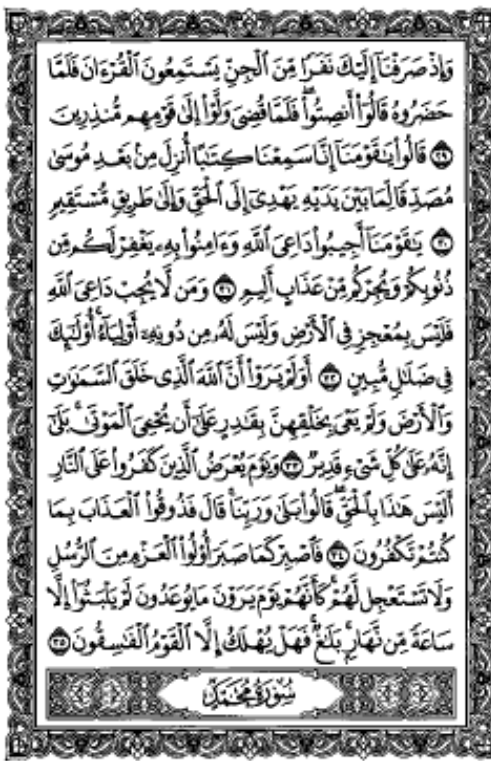 وَإِذْ صَرَفْنَآ إِلَيْكَ نَفَرًا مِّنَ ٱلْجِنِّ يَسْتَمِعُونَ ٱلْقُرْءَانَ فَلَمَّا
حَضَرُوهُ قَالُوٓا۟ أَنصِتُوا۟ ۖ فَلَمَّا قُضِىَ وَلَّوْا۟ إِلَىٰ قَوْمِهِم مُّنذِرِينَ
٢٩ قَالُوا۟ يَٰقَوْمَنَآ إِنَّا سَمِعْنَا كِتَٰبًا أُنزِلَ مِنۢ بَعْدِ مُوسَىٰ
مُصَدِّقًا لِّمَا بَيْنَ يَدَيْهِ يَهْدِىٓ إِلَى ٱلْحَقِّ وَإِلَىٰ طَرِيقٍ مُّسْتَقِيمٍ
٣٠ يَٰقَوْمَنَآ أَجِيبُوا۟ دَاعِىَ ٱللَّهِ وَءَامِنُوا۟ بِهِۦ يَغْفِرْ لَكُم مِّن
ذُنُوبِكُمْ وَيُجِرْكُم مِّنْ عَذَابٍ أَلِيمٍ ٣١ وَمَن لَّا يُجِبْ دَاعِىَ ٱللَّهِ
فَلَيْسَ بِمُعْجِزٍ فِى ٱلْأَرْضِ وَلَيْسَ لَهُۥ مِن دُونِهِۦٓ أَوْلِيَآءُ ۚ أُو۟لَٰٓئِكَ
فِى ضَلَٰلٍ مُّبِينٍ ٣٢ أَوَلَمْ يَرَوْا۟ أَنَّ ٱللَّهَ ٱلَّذِى خَلَقَ ٱلسَّمَٰوَٰتِ
وَٱلْأَرْضَ وَلَمْ يَعْىَ بِخَلْقِهِنَّ بِقَٰدِرٍ عَلَىٰٓ أَن يُحْۦِىَ ٱلْمَوْتَىٰ ۚ بَلَىٰٓ
إِنَّهُۥ عَلَىٰ كُلِّ شَىْءٍ قَدِيرٌ ٣٣ وَيَوْمَ يُعْرَضُ ٱلَّذِينَ كَفَرُوا۟ عَلَى ٱلنَّارِ
أَلَيْسَ هَٰذَا بِٱلْحَقِّ ۖ قَالُوا۟ بَلَىٰ وَرَبِّنَا ۚ قَالَ فَذُوقُوا۟ ٱلْعَذَابَ بِمَا
كُنتُمْ تَكْفُرُونَ ٣٤ فَٱصْبِرْ كَمَا صَبَرَ أُو۟لُوا۟ ٱلْعَزْمِ مِنَ ٱلرُّسُلِ
وَلَا تَسْتَعْجِل لَّهُمْ ۚ كَأَنَّهُمْ يَوْمَ يَرَوْنَ مَا يُوعَدُونَ لَمْ يَلْبَثُوٓا۟ إِلَّا
سَاعَةً مِّن نَّهَارٍۭ ۚ بَلَٰغٌ ۚ فَهَلْ يُهْلَكُ إِلَّا ٱلْقَوْمُ ٱلْفَٰسِقُونَ ٣٥
سُورَةُ مُحَمَّدٍ